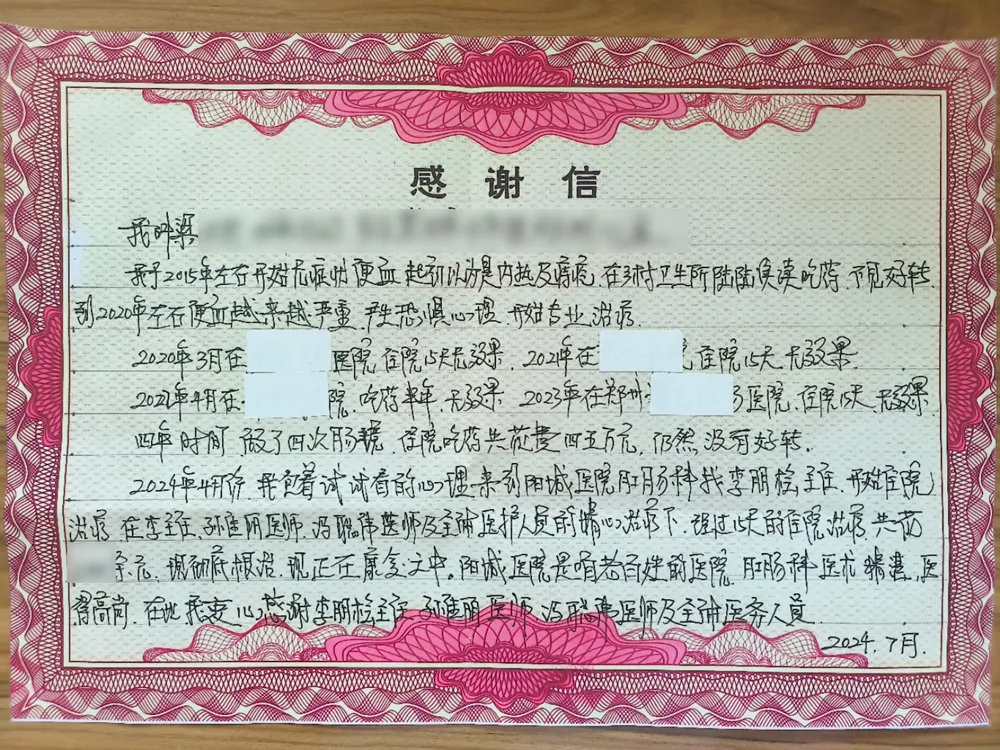 感谢信
我叫梁
我于2015年左右开始无症状便血 起初以为是内热及痔疮,在乡村卫生所陆陆续续吃药 不见好转
到2020年左右便血越来越严重,产生恐惧心理 开始专业治疗.
2020年3月在 医院,住院15天无效果. 2021年在 住院15天无效果.
2022年4月在 院.吃药半年.无效果 2023年在郑州 医院.住院15天.无效果
四年时间 做了四次肠镜,住院吃药共花费四五万元,仍然没有好转.
2024年4月份 我抱着试试看的心理来到阳城医院肛肠科找李朋松主任.开始住院
治疗 在李主任 孙佳丽医师 冯聪伟医师及全体医护人员的精心治疗下.经过15天的住院治疗 共花
余元.现彻底根治.现正在康复之中。阳城医院是咱老百姓的医院 肛肠科医术精湛,医
得高尚.在此我衷心感谢李朋松主任.孙佳丽医师 冯聪伟医师及全体医务人员.
2024.7月.